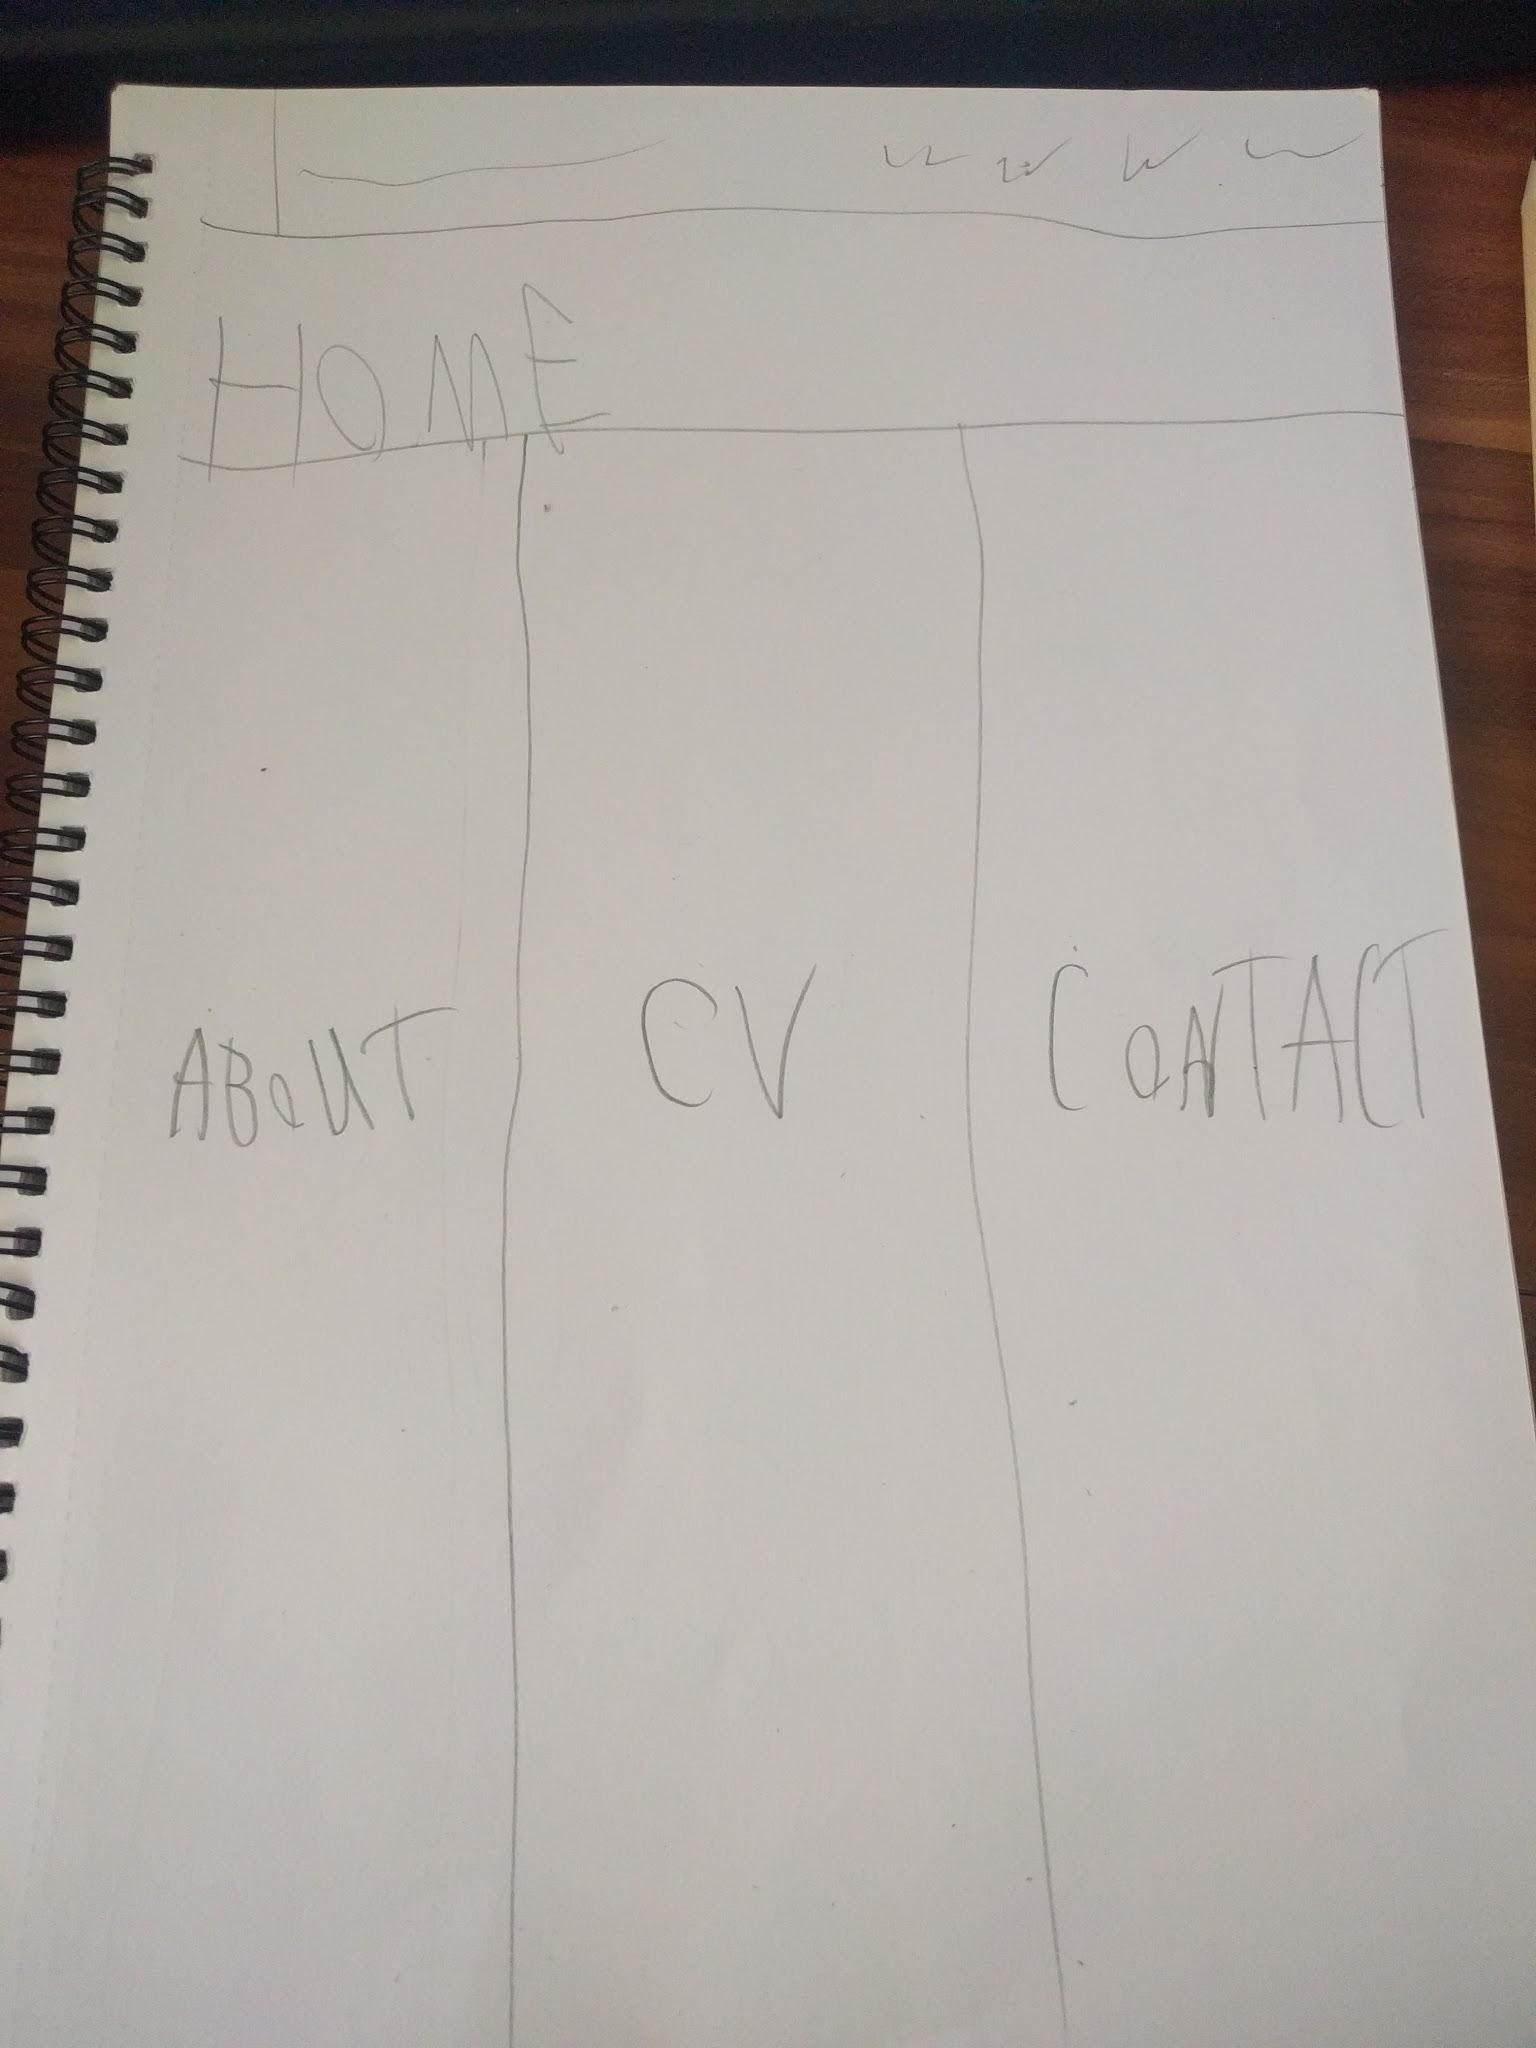 HOME
ABOUT
CV
CONTACT